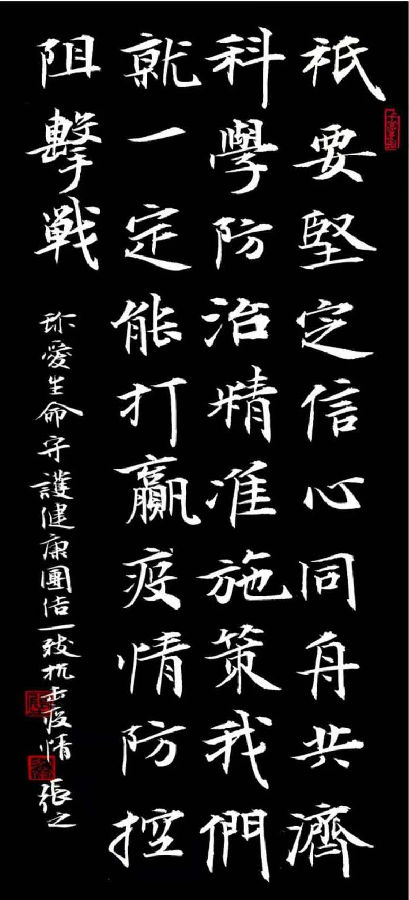 祇要堅定信心同舟共濟
科學防治精准施策我們
就一定能打贏疫情防控
阻擊戰
珎愛生命守護健康團结一致抗击疫情 張之